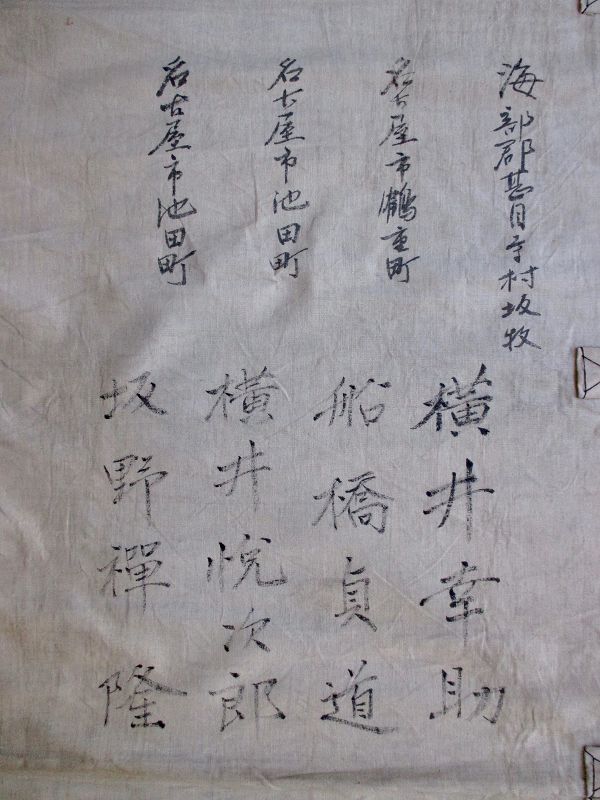 海部郡甚目寺村坂牧
横井幸助
名古屋市鶴重町
船橋貞道
名古屋市池田町
横井悦次郎
名古屋市池田町
坂野禪隆